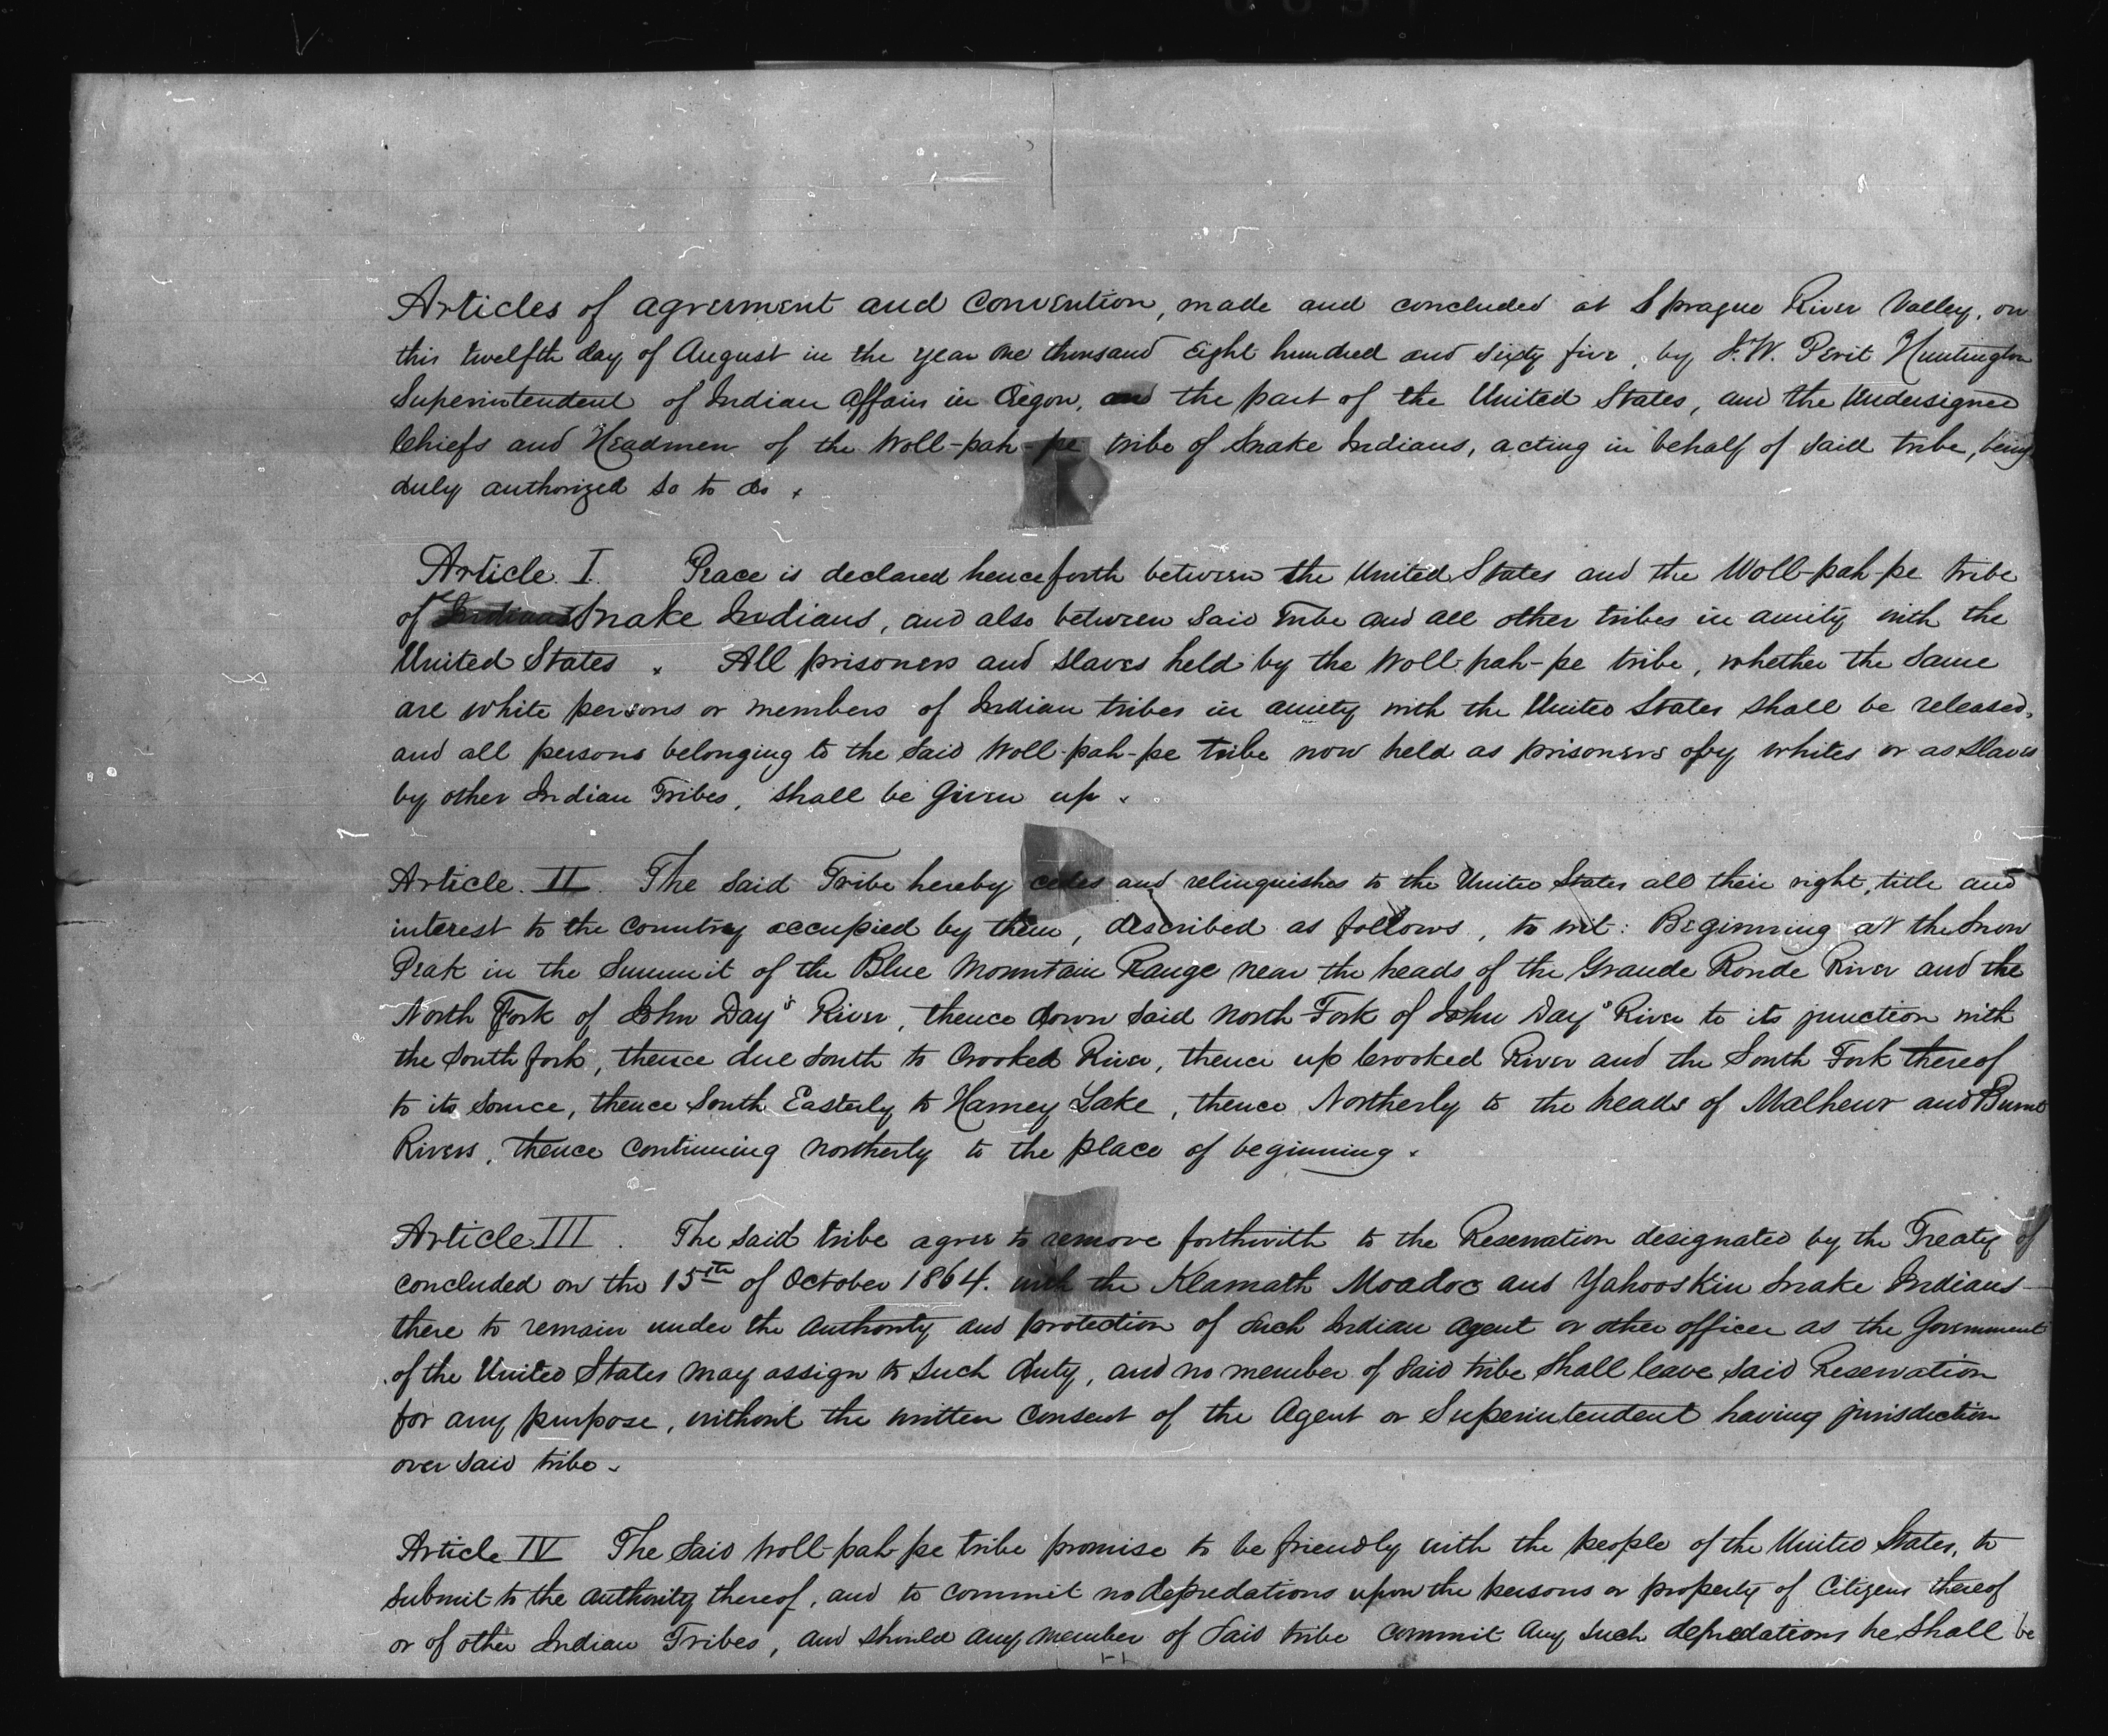 Articles of agreement and convention, made and concluded at Sprague River Valley, on
this twelfth day of August in the year one thousand eight hundred and sixty five, by J. W. Perit Huntington
Superintendent of Indian Affairs in Oregon, on the part of the United States, and the Undersigned
Chiefs and Headmen of the Woll-pah-pe tribe of Snake Indians, acting in behalf of said tribe, being
duly authorized so to do.
Article I. Peace is declared henceforth between the United States and the Woll-pah-pe tribe
of Snake Indians, and also between said Tribe and all other tribes in amity with the
United States. All prisoners and slaves held by the Woll-pah-pe tribe, whether the same
are white persons or members of Indian tribes in amity with the United States shall be released,
and all persons belonging to the said Woll-pah-pe tribe now held as prisoners by whites or as slaves
by other Indian Tribes, shall be given up.
Article. II. The said Tribe hereby cedes and relinquishes to the United States all their right, title and
interest to the country occupied by them, described as follows, to wit: Beginning at the Snow
Peak in the Summit of the Blue Mountain Range near the heads of the Grande Ronde River and the
North Fork of John Day's River, thence down said North Fork of John Day's River to its junction with
the South fork, thence due south to Crooked River, thence up Crooked River and the South Fork thereof
to its source, thence South Easterly to Harney Lake, thence Northerly to the heads of Malheur and Burnt
Rivers, thence continuing northerly to the place of beginning.
Article III. The said tribe agree to remove forthwith to the Reservation designated by the Treaty of
concluded on the 15th of October 1864. with the Klamath Moadoc and Yahooskin Snake Indians
there to remain under the authority and protection of such Indian agent or other officer as the Government
of the United States may assign to such duty, and no member of said tribe shall leave said Reservation
for any purpose, without the written consent of the Agent or Superintendent having jurisdiction
over said tribe.
Article IV The said Woll-pah-pe tribe promise to be friendly with the people of the United States, to
submit to the authority thereof, and to commit no depredations upon the persons or property of Citizens thereof
or of other Indian Tribes, and should any member of said tribe commit any such depredations he shall be